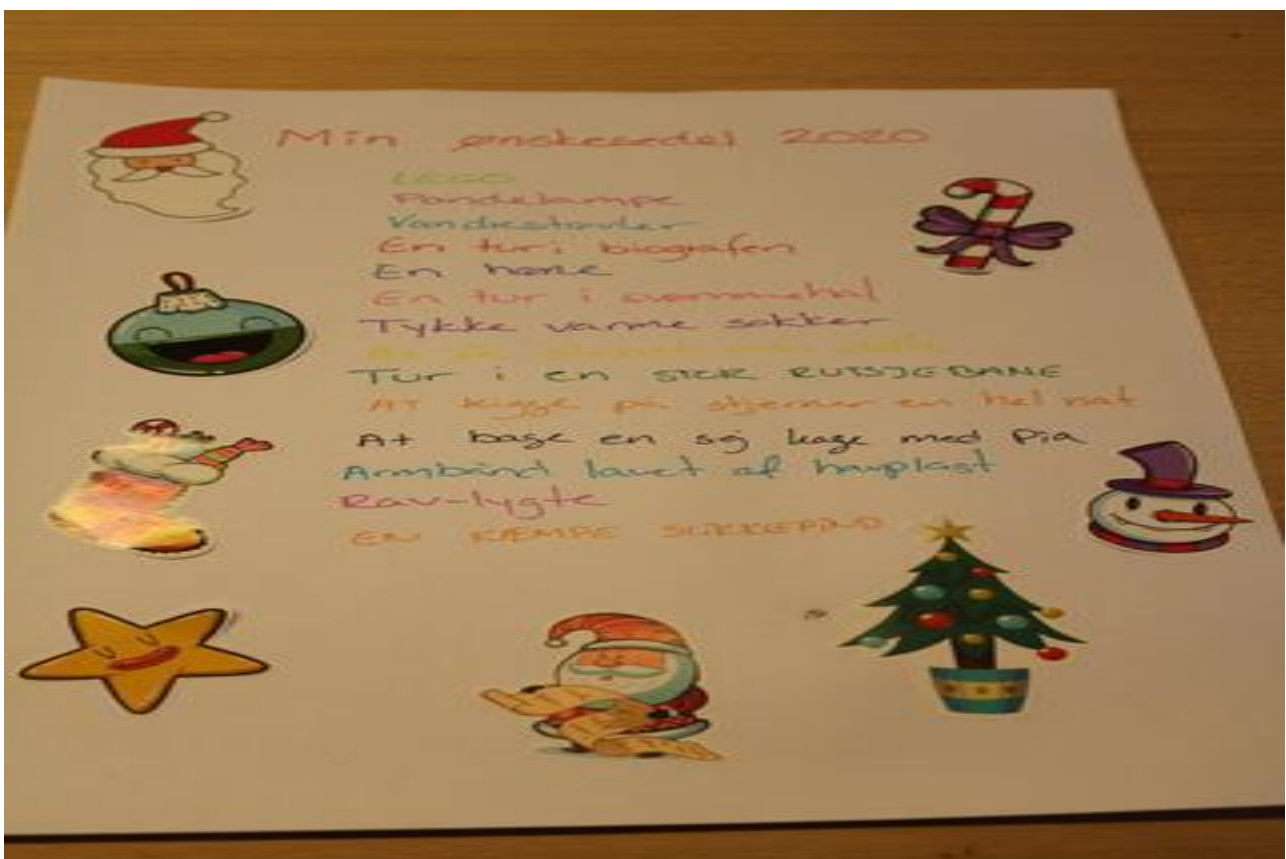 Min ønskeseddel 2020
LEGO
Pandelampe
Vandrestøvler
En tur i biografen
En høne
En tur i svømmehal
Tykke varme sokker
Tur i en STOR RUTSJEBANE
At kigge på stjerner en hel nat
At bage en sej kage med Pia
Armbånd lavet af havplast
Rav-lygte
EN KÆMPE SLIKKEPIND